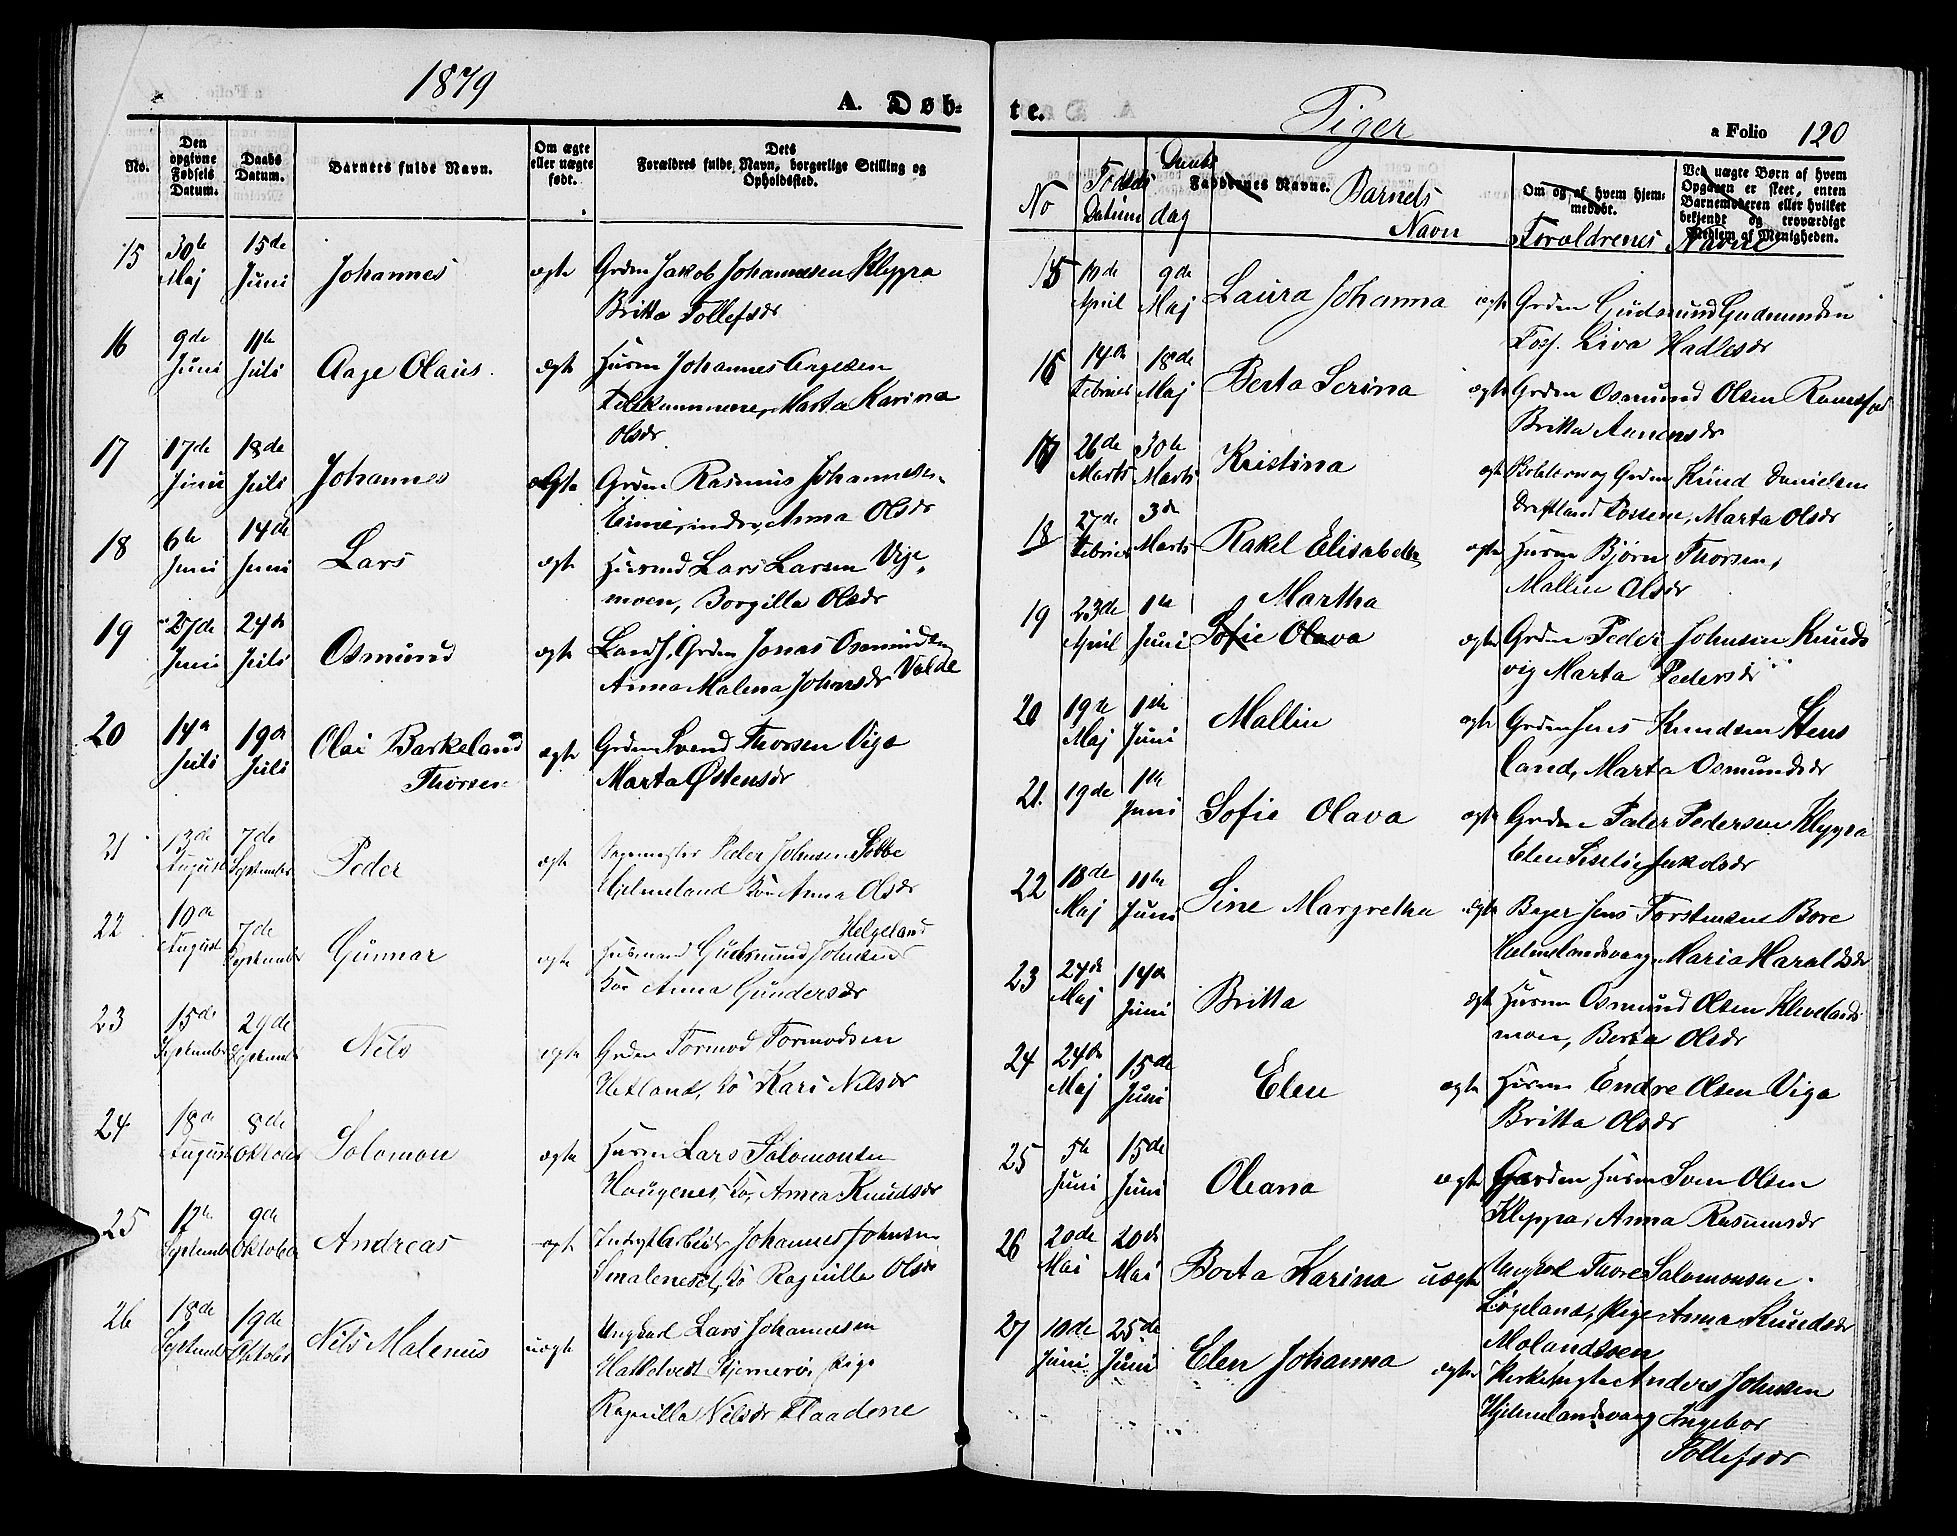 1879
A. Døb-
No.
Den opgivne Fødsels Datum.
Daabs Datum.
Barnets fulde Navn.
Om ægte eller uægte født.
Dets Forældres fulde Navn, borgerlige Stilling og Opholdssted.
15 30te Maj 15de Juni Johannes ægte Grdm Jakob Johannesen Kleppa
Britta Tollefsdr
16 9de Juni 11te Juli Aage Olaus. ægte Husm Johannes Aagesen
Marta Karina
Olsdr
17 17de Juni 18de Juli Johannes ægte Grdm Rasmus Johannesen
Anna Olsdr
18 6te Juni 14de Juni Lars ægte Husmd Lars Larsen Vig-
moen, Borgilla Olsdr
19 27de Juni 24de Juli Osmund ægte Landh. Grdm Jonas Osmundsen
Anna Malena Johnsdr Valde
20 14de Juli 19de Juli Olai Barkeland ægte Grdm Svend Thorsen Viga
Thorsen Marta Østensdr
21 13de August 7de September Peder ægte Sagmester Peder Johnsen Sæbbe
Hjelmeland Anna Olsdr
22 10de August 7de September Gunnar ægte Husmand Gudmund Johnsen Helgeland
Anna Gundersdr
23 15de September 29de September Nels ægte Grdm Tormod Tormodsen
Hetland, Kari Nelsdr
24 18de August 8de Oktober Solomon ægte Husm Lars Salomonsen
Hougenes, Anna Knudsdr
25 12te September 9de Oktober Andreas ægte Johannes Johnsen
Ragnilla Olsdr
26 18de September 19de Oktober Nils Malenius uægte Ungkarl Lars Johannesen
Hatlelvedt Hjernerø, Pige
Ragnilla Nelsdr Flaadene
te.
Piger
a Folio 120
No
Fødsels Datum
Daabs dag
Faddernes Navne.
Barnets Navn
Om og af hvem hjemmedøbt.
Ved uægte Børn af hvem Opgaven er skeet, enten Barnemoderen eller hvilket bekjendt og troværdigt Medlem af Menigheden.
Forældrenes Navne
15 10de April 9de Maj Laura Johanna ægte Grdm Gudmund Gudmundsen
Foss. Liva Hadlesdr
16 14de Februar 18de Maj Berta Serina ægte Grdm Osmund Olsen
Britta
17 26de Marts 30te Marts Kristina ægte Grdm Knud Danielsen
Marta Olsdr
18 27de Februar 3de Marts Rakel Elisabeta ægte Husm Bjørn Thorsen,
Mallin Olsdr
19 23de April 1te Juni Martha
Sofie Olava ægte Grdm Peder Johnsen Knuds
vig Marta Pedersdr
20 19de Maj 1te Juni Mallin ægte Grdm Jens Knudsen Stens
land, Marta Osmundsdr
21. 19de 1te Juni Sofie Olava ægte Grdm Peder Pedersen Kleppa
Elen Jakobsdr
22 18de Maj 11te Juni Sine Margretha ægte Jens Torstensen Bore
Hjelmelandsvaag Maria Haraldsdr
23 24de Maj 14de Juni Britta ægte Husm Osmund Olsen Klevelands
moen, Berta Olsdr
24 24de Maj 15de Juni Elen ægte Husm Endre Olsen Viga
Britta Olsdr
25 5te Juni 15de Juni Oleana ægte Husm Sven Olsen
Kleppa, Anna Rasmusdr
26 20de Mai 20de Mai Berta Karina uægte Ungkarl Thore Salomonsen
Løgeland, Pige Anna Knudsdr
Molandsven
27 10de Juni 25de Juni Elen Johanna ægte Anders Johnsen
Hjelmelandsvaag Ingebor
Tollefsdr